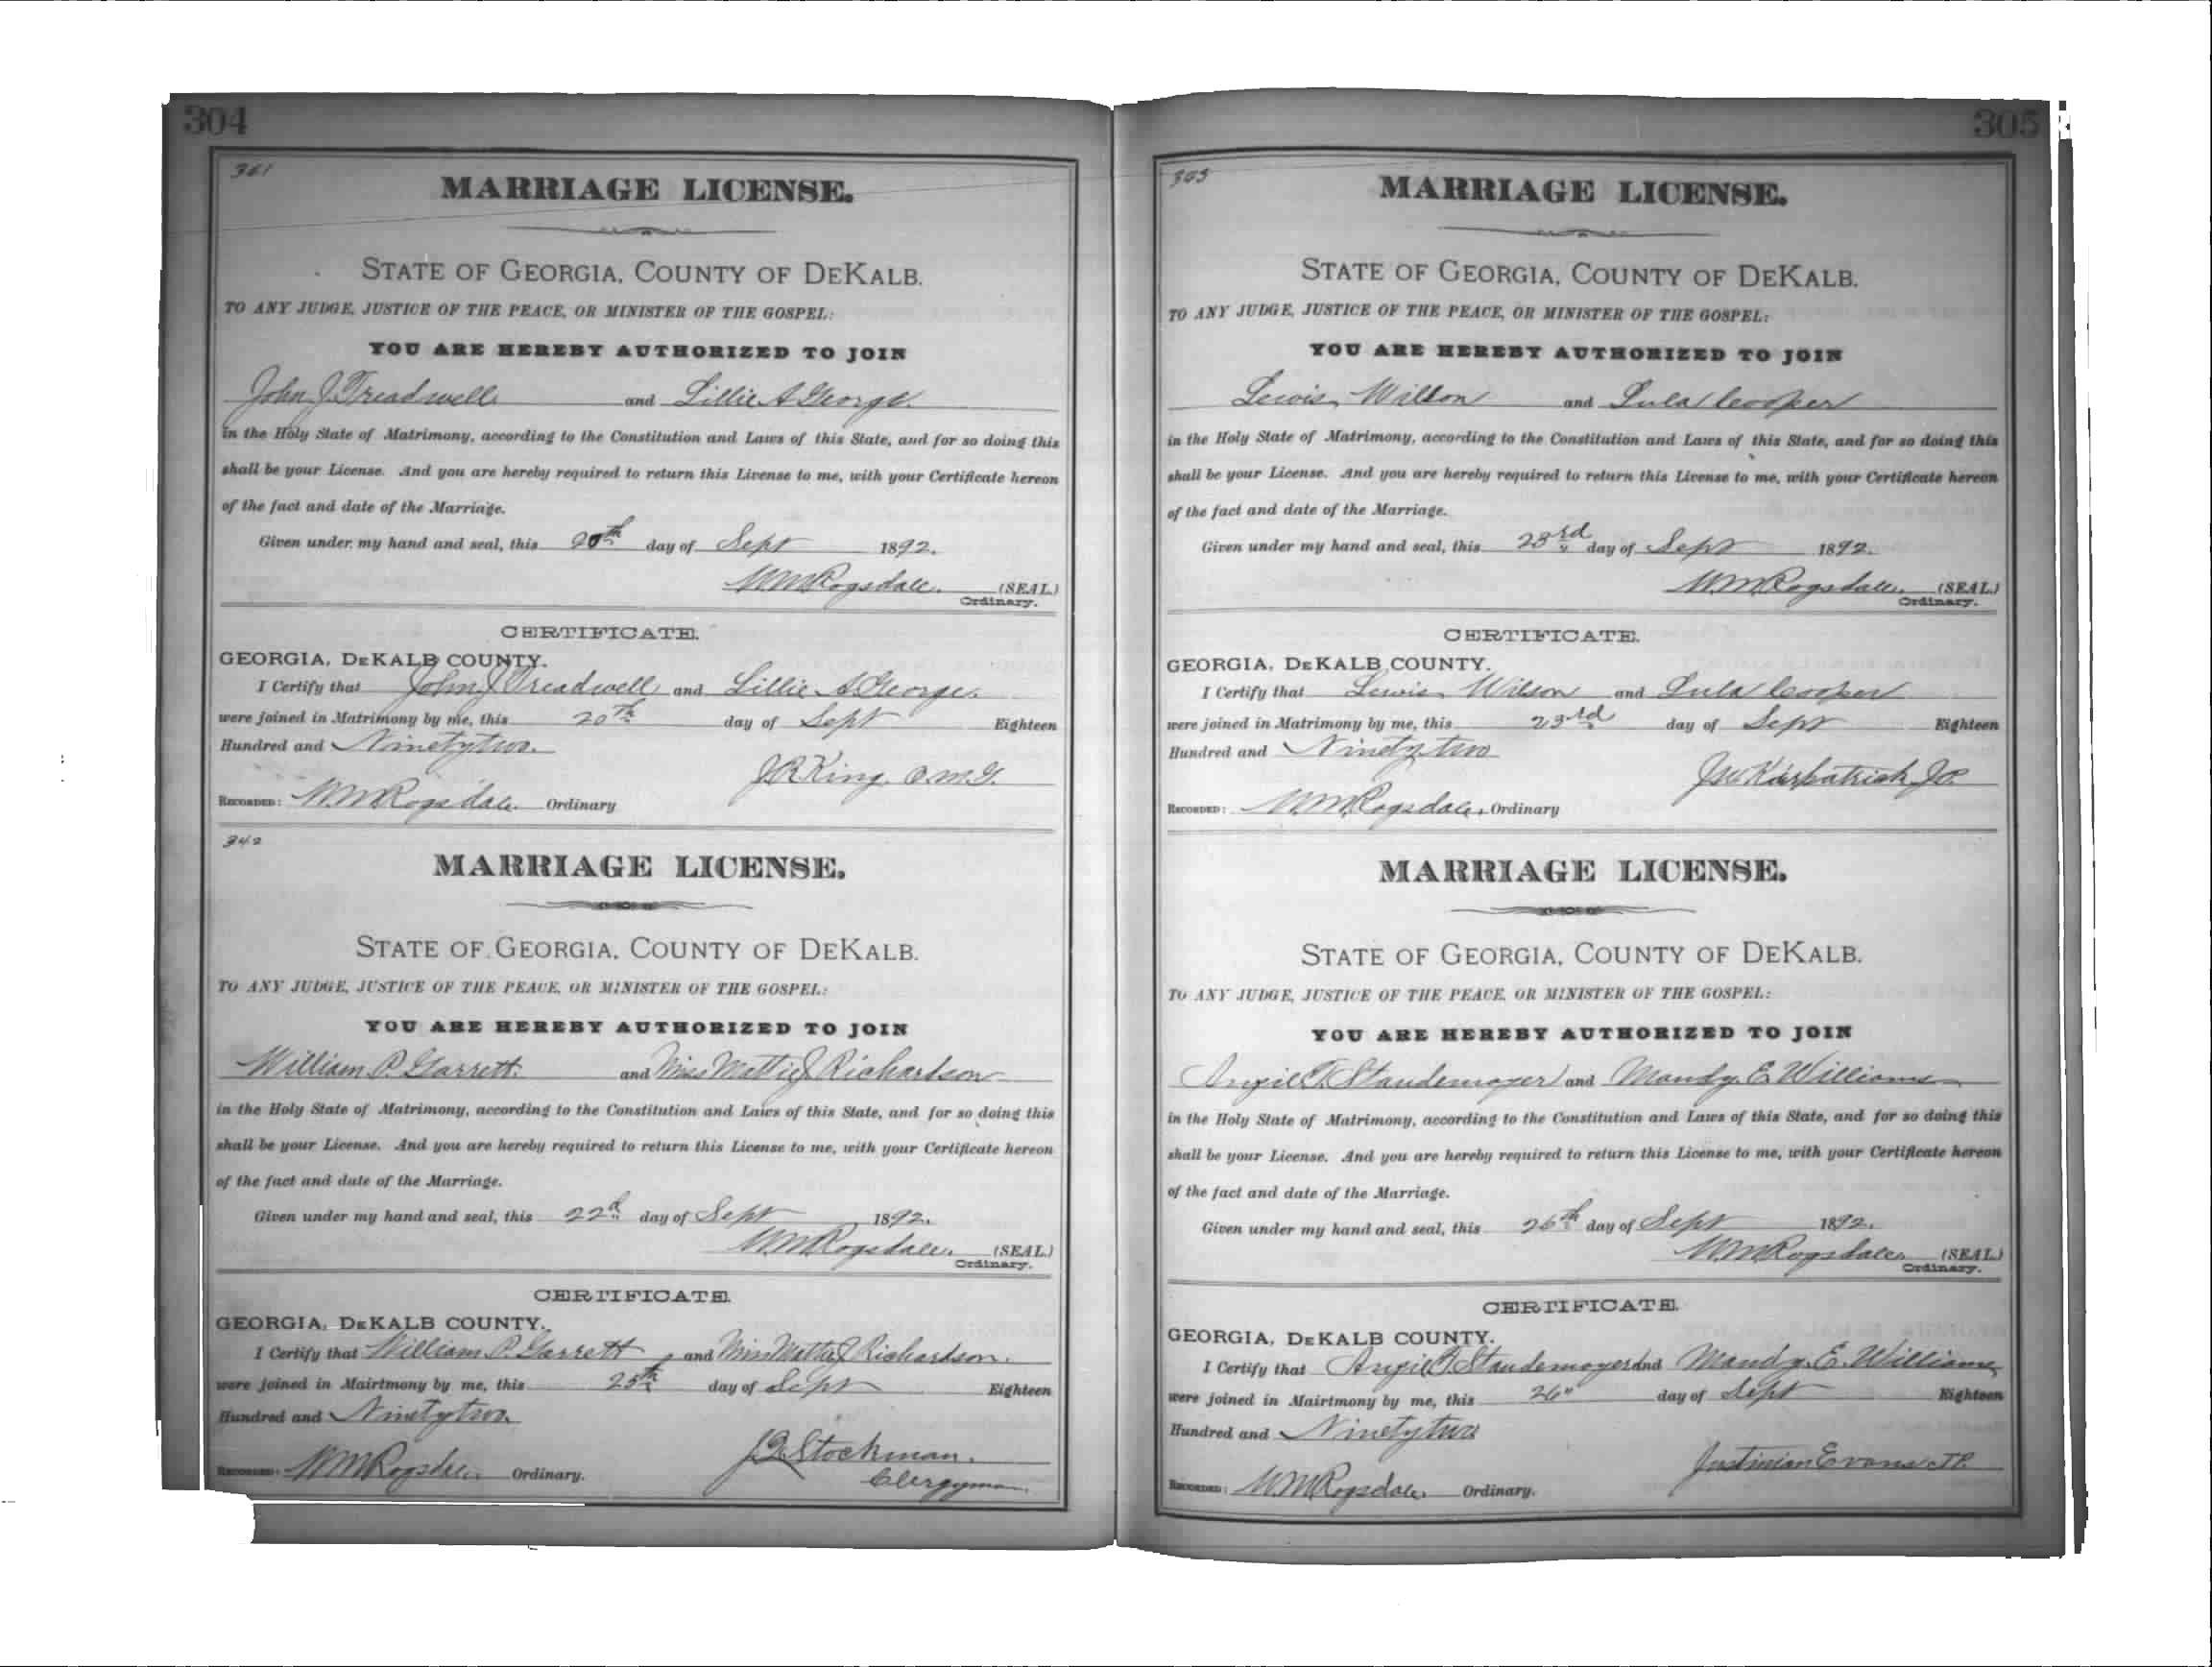 304
361
MARRIAGE LICENSE.
STATE OF GEORGIA, COUNTY OF DEKALB.
TO ANY JUDGE, JUSTICE OF THE PEACE, OR MINISTER OF THE GOSPEL:
YOU ARE HEREBY AUTHORIZED TO JOIN
John J. Treadwell and Lillie A George.
in the Holy State of Matrimony, according to the Constitution and Laws of this State, and for so doing this
shall be your License. And you are hereby required to return this License to me, with your Certificate hereon
of the fact and date of the Marriage.
Given under my hand and seal, this 20th day of Sept 1892.
W.M.Ragsdale. (SEAL)
Ordinary.
CERTIFICATE.
GEORGIA, DEKALB COUNTY.
I Certify that John J Treadwell and Lillie A George.
were joined in Matrimony by me, this 20th day of Sept Eighteen
Hundred and Ninetytwo.
J.R.King. O.M.G.
RECORDED: W.M.Ragsdale. Ordinary
342
MARRIAGE LICENSE.
STATE OF GEORGIA, COUNTY OF DEKALB.
TO ANY JUDGE, JUSTICE OF THE PEACE, OR MINISTER OF THE GOSPEL:
YOU ARE HEREBY AUTHORIZED TO JOIN
William P. Garrett. and Miss Mattie J Richardson
in the Holy State of Matrimony, according to the Constitution and Laws of this State, and for so doing this
shall be your License. And you are hereby required to return this License to me, with your Certificate hereon
of the fact and date of the Marriage.
Given under my hand and seal, this 22d day of Sept 1892.
W.M.Ragsdale. (SEAL)
Ordinary.
CERTIFICATE.
GEORGIA, DEKALB COUNTY.
I Certify that William P. Garrett and Miss Mattie J Richardson.
were joined in Mairtmony by me, this 25th day of Sept Eighteen
Hundred and Ninetytwo.
Stockman.
Clergyman.
RECORDED: W.M.Ragsdale. Ordinary.
305
MARRIAGE LICENSE.
STATE OF GEORGIA, COUNTY OF DEKALB.
TO ANY JUDGE, JUSTICE OF THE PEACE, OR MINISTER OF THE GOSPEL:
YOU ARE HEREBY AUTHORIZED TO JOIN
Lewis Wilson and Lula Cooper
in the Holy State of Matrimony, according to the Constitution and Laws of this State, and for so doing this
shall be your License. And you are hereby required to return this License to me, with your Certificate hereon
of the fact and date of the Marriage.
Given under my hand and seal, this 23rd day of Sept 1892.
W.M.Ragsdale. (SEAL)
Ordinary.
CERTIFICATE.
GEORGIA, DEKALB COUNTY.
I Certify that Lewis Wilson and Lula Cooper
were joined in Matrimony by me, this 23rd day of Sept Eighteen
Hundred and Ninetytwo
Kirkpatrick J.P.
RECORDED: W.M.Ragsdale, Ordinary
MARRIAGE LICENSE.
STATE OF GEORGIA, COUNTY OF DEKALB.
TO ANY JUDGE, JUSTICE OF THE PEACE, OR MINISTER OF THE GOSPEL:
YOU ARE HEREBY AUTHORIZED TO JOIN
Staudemayer and Mandy E. Williams
in the Holy State of Matrimony, according to the Constitution and Laws of this State, and for so doing this
shall be your License. And you are hereby required to return this License to me, with your Certificate hereon
of the fact and date of the Marriage.
Given under my hand and seal, this 26th day of Sept 1892.
W.M.Ragsdale. (SEAL)
Ordinary.
CERTIFICATE.
GEORGIA, DEKALB COUNTY.
I Certify that Staudemoyer and Mandy. E. Williams
were joined in Mairtmony by me, this 26" day of Sept Eighteen
Hundred and Ninetytwo
Justinian Evans J.P.
RECORDED: W.M.Ragsdale. Ordinary.